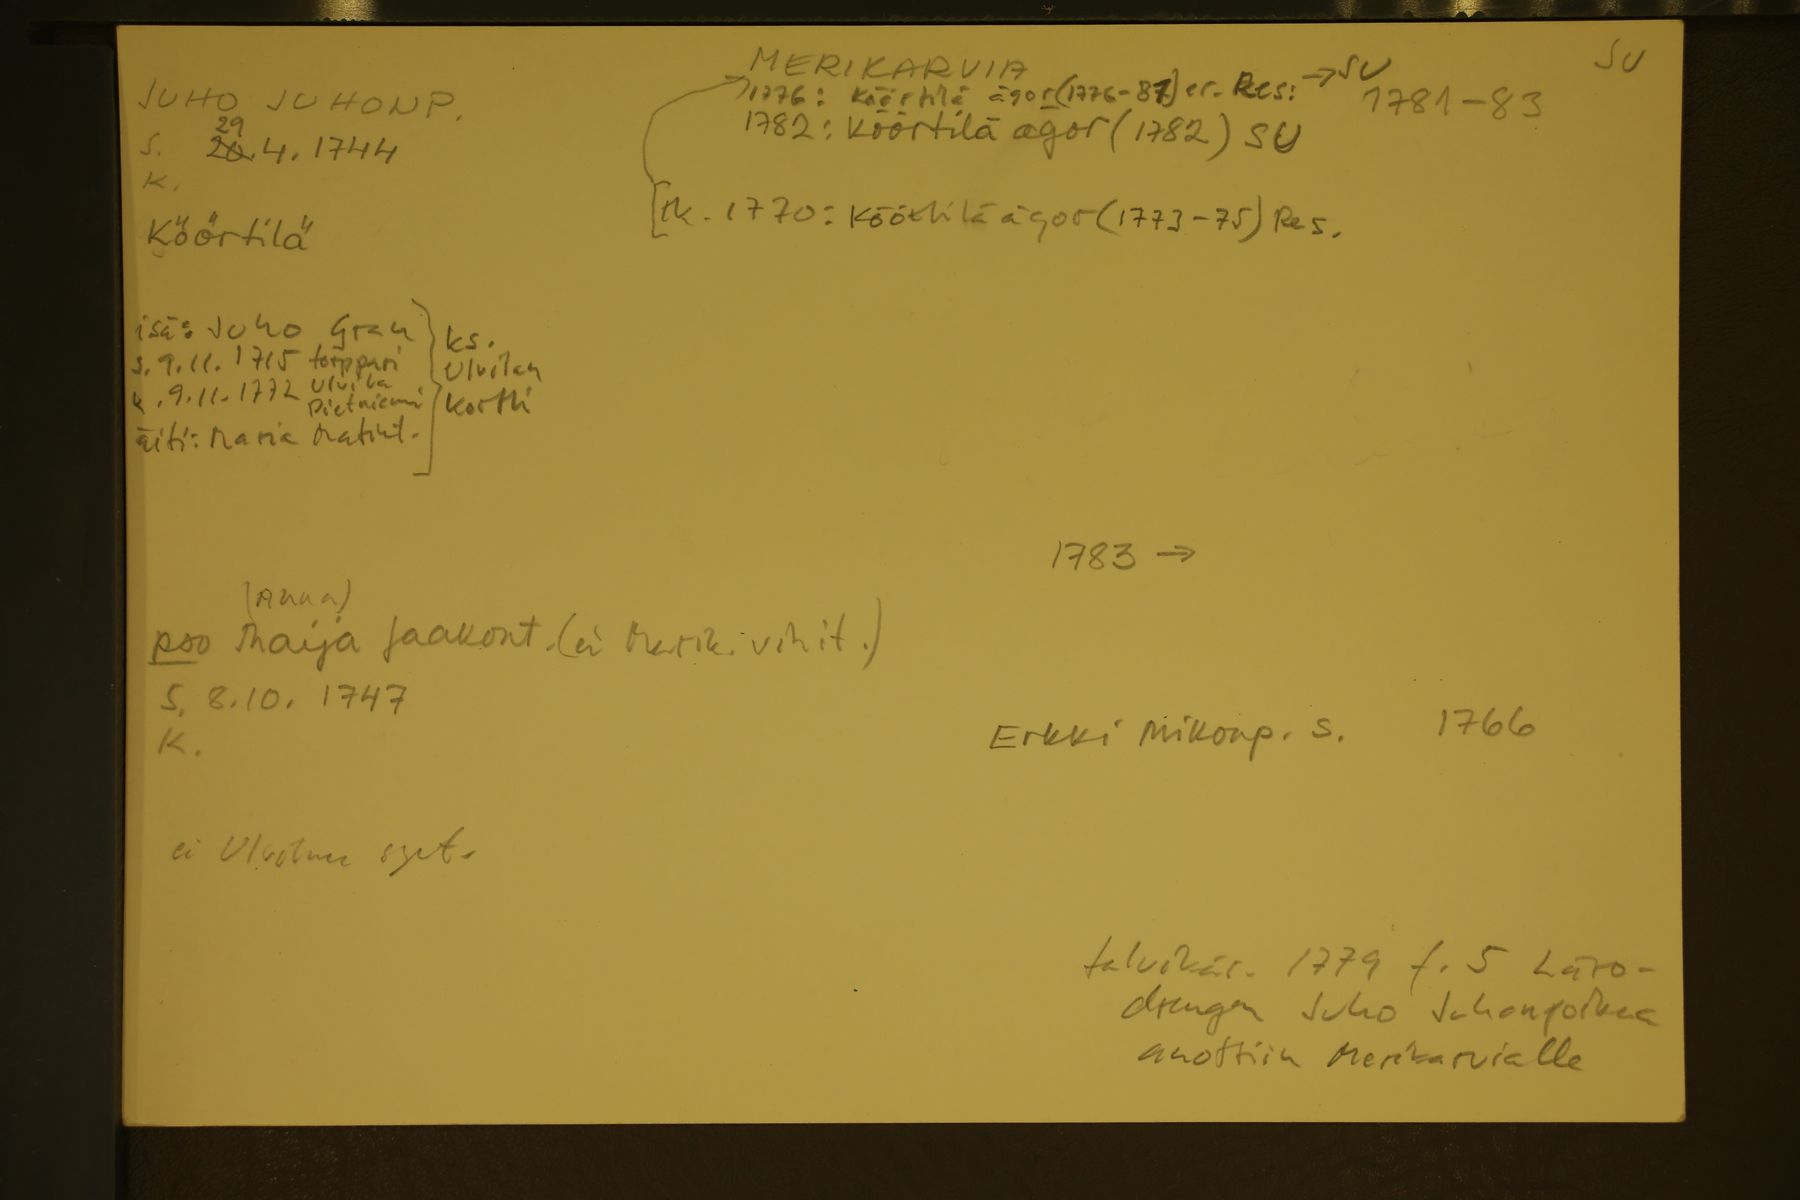 SU
MERIKARVIA
1776: Köörtilä ägor (1776-81) er. Res: → SU
1781-83
1782: Köörtilä ägor (1782) SU
[rk. 1770: Köörtilä ägor (1773-75) Res.
JUHO JUHONP.
29
s. 20.4.1744
k.
Köörtilä
isä: Juho Gran
s. 9.11.1715 torppari
k. 9.11.1772 Ulvila
Pietniemi
äiti: Maria Matint.
ks.
Ulvilan
kortti
1783 →
(Anna)
pso Maija Jaakont. (ei Merik. vihit.)
s. 8.10.1747
k.
Erkki Mikonp. s. 1766
ei Ulvilan synt.
talvikär. 1779 f. 5 Läro-
drengen Juho Juhonpoikaa
anottiin Merikarvialle